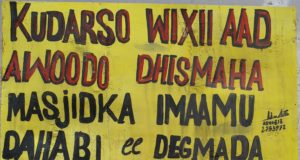 KUDARSO WIXII AAD
AWOODO DHISMAHA
MASJIDKA IMAAMU
DAHABI ee DEGMADA